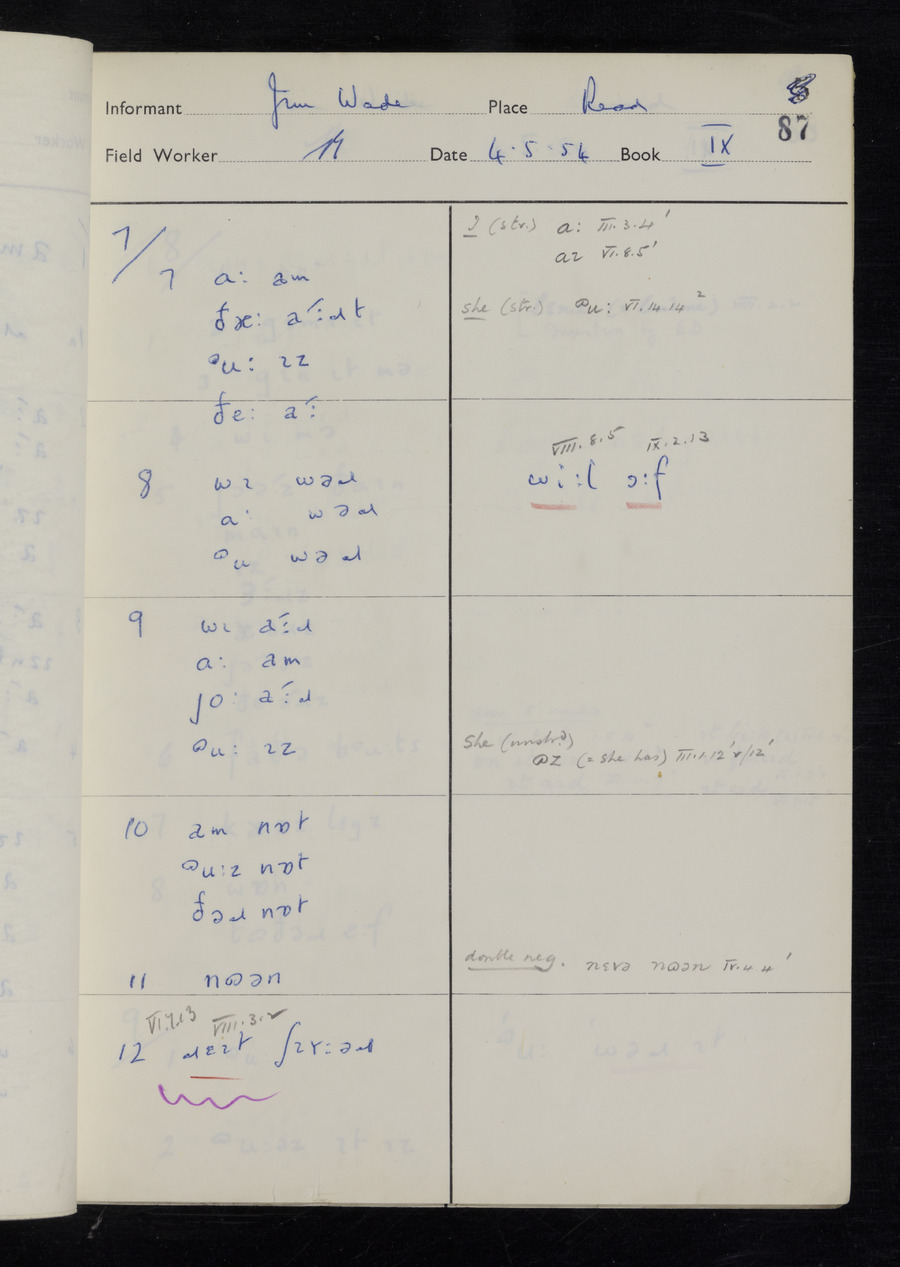 Informant Jim Wade Place Read
87
Field Worker Date 4.5.54 Book IX
7/
7 a: am
ðɛ: a´:ɹt
ᶷu: ɪz
ðe: a´:
8 wɪ wəɹ
a: wəɹ
ᶷu wəɹ
9 wɪ a´:ɹ
a: am
jo: a´:ɹ
ᶷu: ɪz
10 am nɒt
ᶷu:z nɒt
ðəɹ nɒt
11 nɷən
VIII.3.2
12 ɹɛɪt ʃɪɤ:əɹ
I (str.) a: III.3.4'
aɪ VI.8.5'
she (str.) ᶷu: VI.14.14²
VIII.8.5 IX.2.13
wi:l ɔ:f
She (unstr.)
ɷz (= she has) III.1.12'r/12'
double neg. nɛvə nɷən IV.4.4'